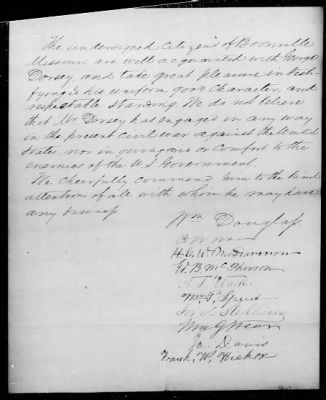 The undersigned citizens of Boonville
Missouri are well acquainted with George
Dorsey, and take great pleasure in testi-
fying to his uniform good character, and
respectable standing. We do not believe
that Mr Dorsey has engaged in any way
in the present civil war against the United
States, nor in giving aid or comfort to the
enemies of the U.S. Government.
We cheerfully commend him to the kind
attention of all with whom he may have
any business
Wm Douglass
H. B. McPherson
Wm
Jas Davis
Frank W.